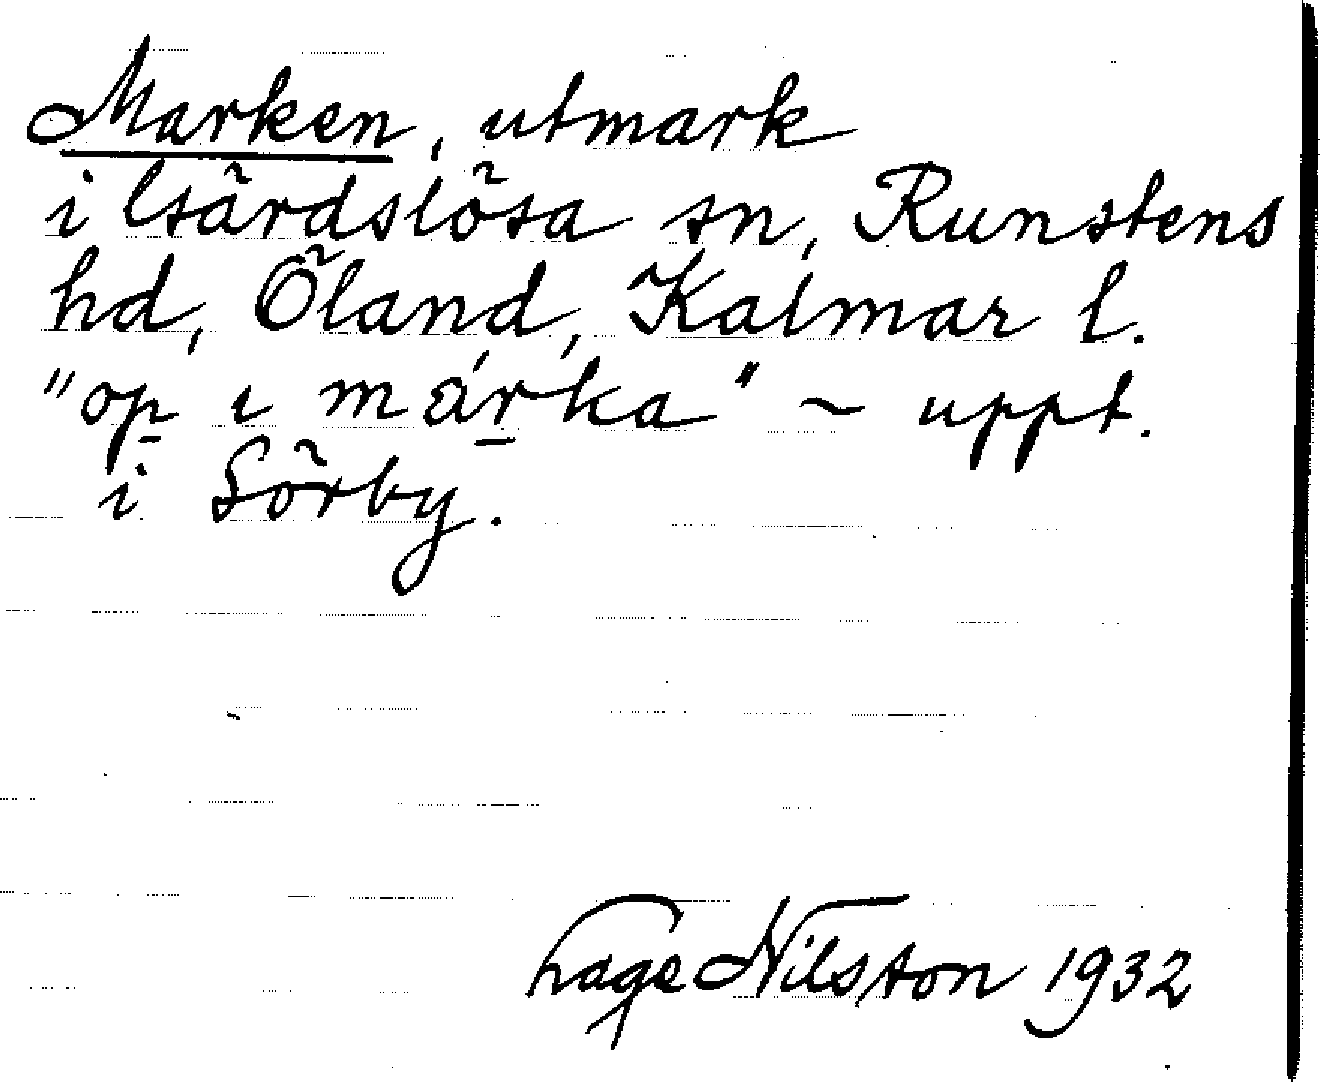 Marken, utmark
i Gärdslösa sn, Runstens
hd, Öland, Kalmar l.
"op ı márka" ~ uppt.
i Sörby.
Hage Nilsson 1932